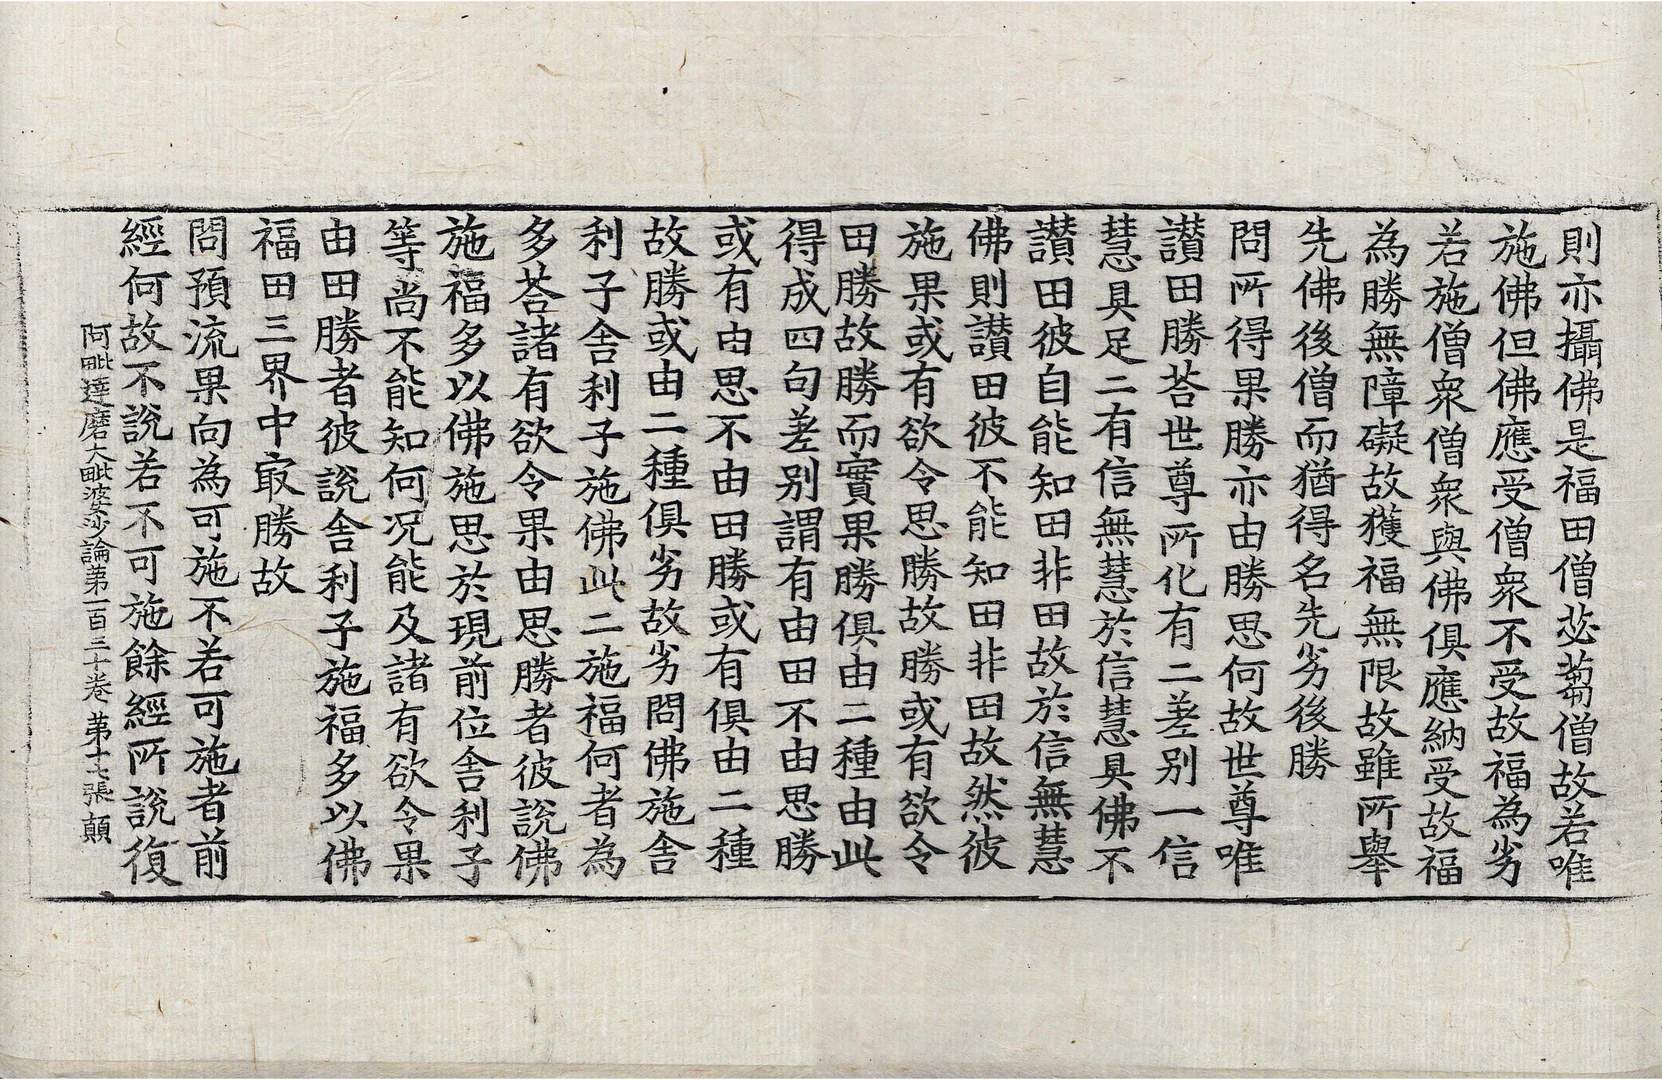 則亦攝佛是福田僧苾蒭僧故若唯
施佛但佛應受僧衆不受故福為劣
若施僧衆僧衆與佛俱應納受故福
為勝無障礙故獲福無限故雖所舉
先佛後僧而猶得名先劣後勝
問所得果勝亦由勝思何故世尊唯
讃田勝荅世尊所化有二差別一信
慧具足二有信無慧於信慧具佛不
讃田彼自能知田非田故於信無慧
佛則讃田彼不能知田非田故然彼
施果或有欲令思勝故勝或有欲令
田勝故勝而實果勝俱由二種由此
得成四句差別謂有由田不由思勝
或有由思不由田勝或有俱由二種
故勝或由二種俱劣故劣問佛施舍
利子舍利子施佛此二施福何者為
多荅諸有欲令果由思勝者彼說佛
施福多以佛施思於現前位舍利子
等尚不能知何况能及諸有欲令果
由田勝者彼說舍利子施福多以佛
福田三界中㝡勝故
問預流果向為可施不若可施者前
經何故不說若不可施餘經所說復
阿毗達磨大毗婆沙論第一百三十卷 第十七張 顛